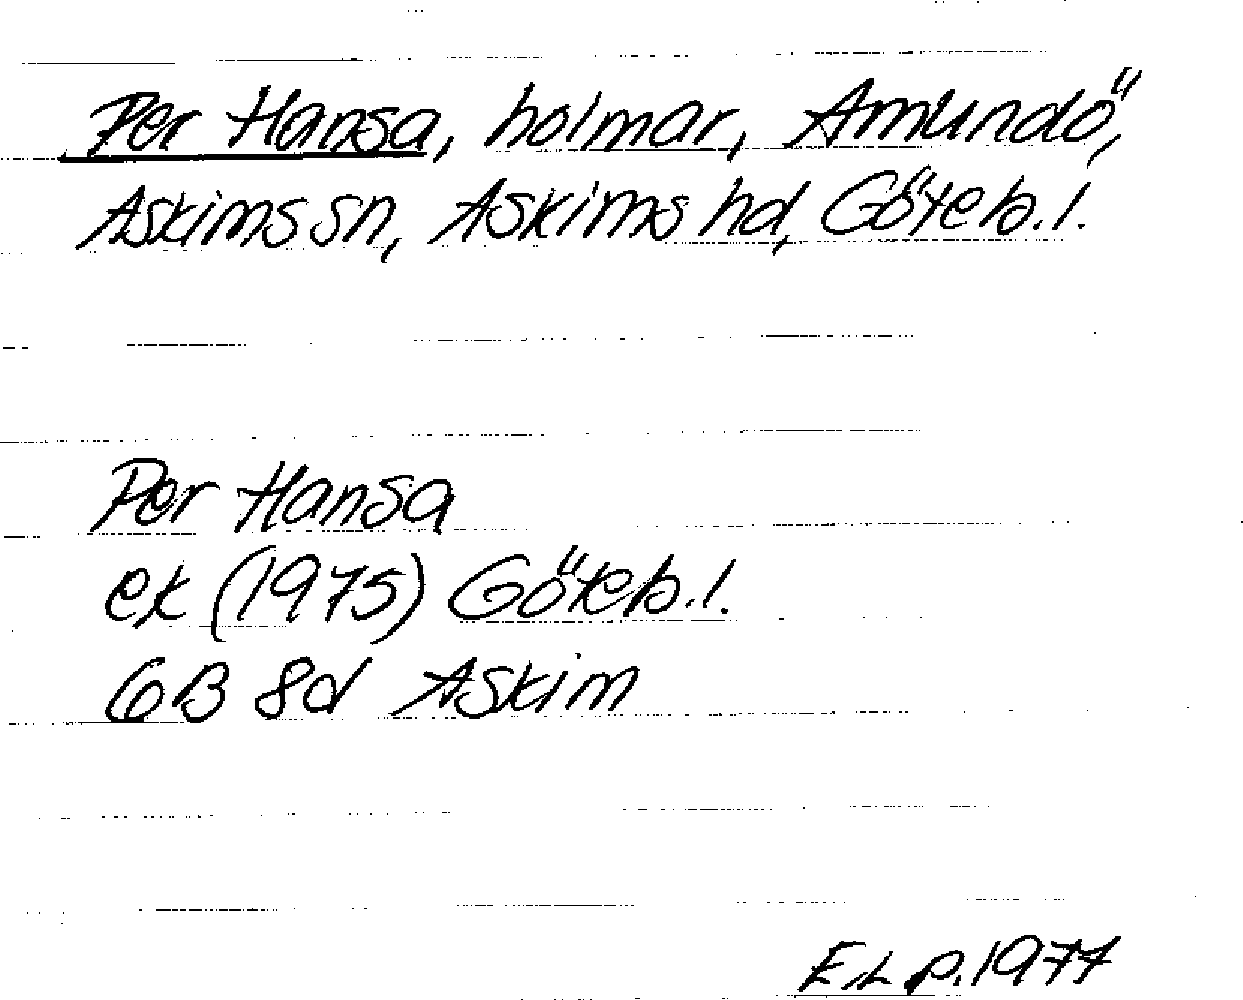 Per Hansa, holmar, Amundö,
Askims sn, Askims hd, Göteb. l.
Per Hansa
ek (1975) Göteb. l.
6B 8d Askim
E.L.P. 1977